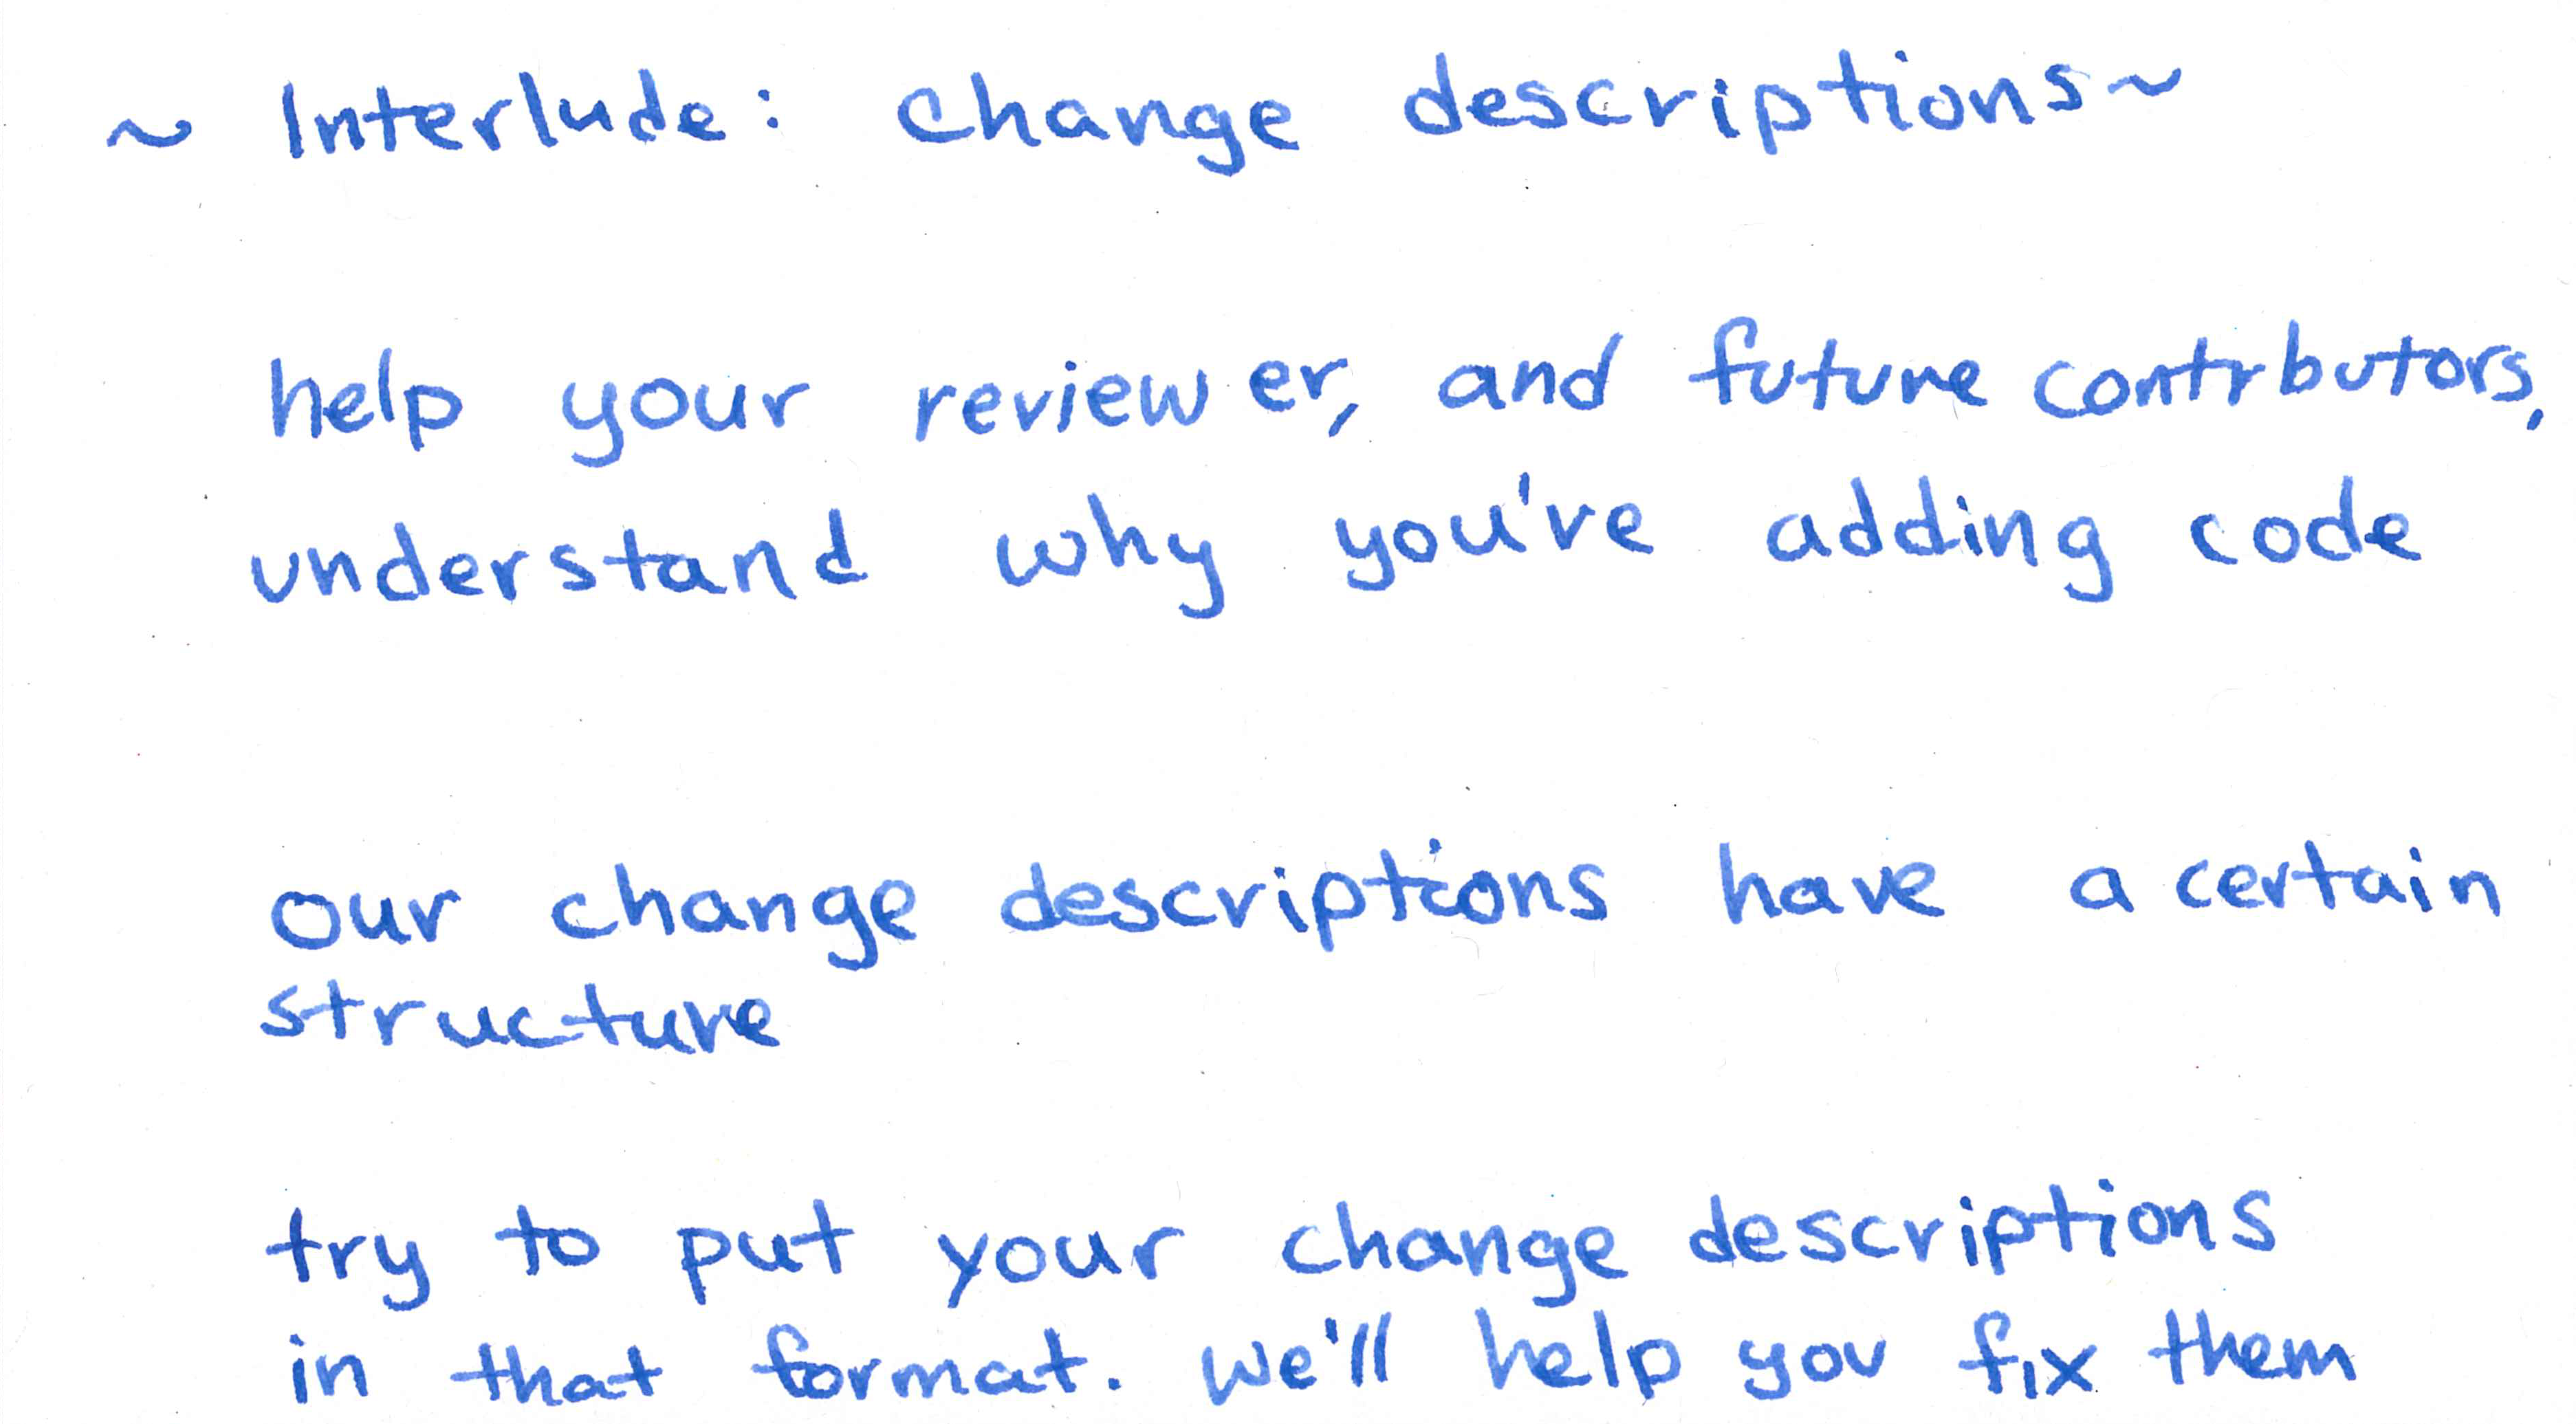 ~ Interlude: Change descriptions ~
help your reviewer, and future contrbutors,
understand why you've adding code
our change descriptions have a certain
structure
try to put your change descriptions
in that format. We'll help you fix them